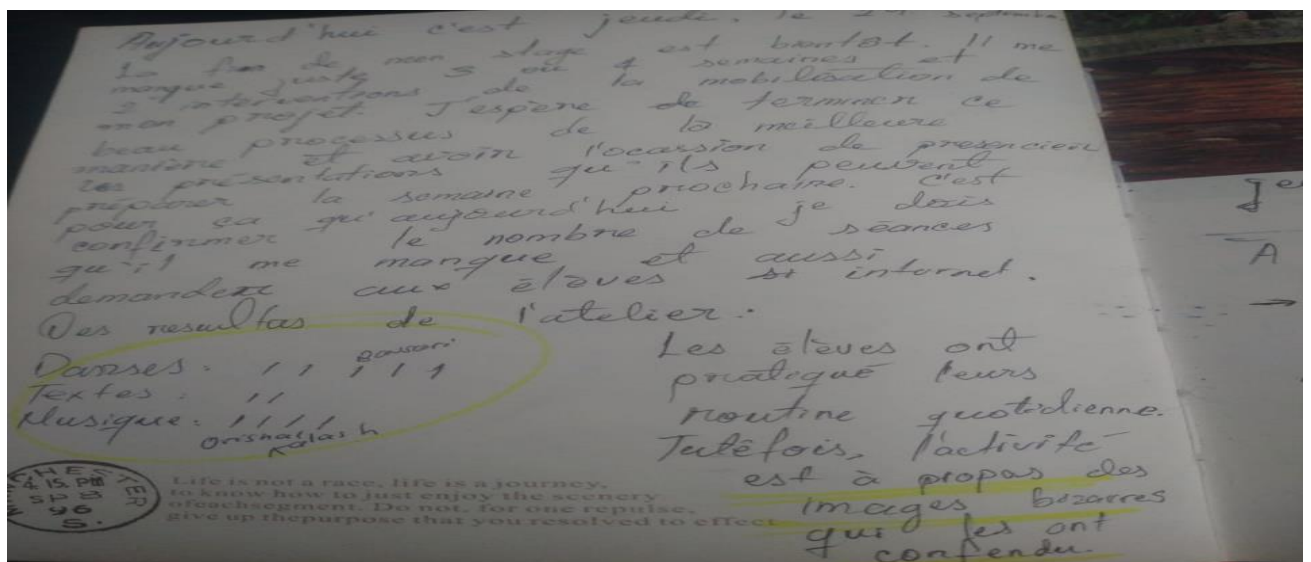 Aujourd'hui c'est jeudi, le septembre
La fin de mon stage est bientôt. Il me
manque juste 3 ou 4 semaines et
2 interventions de la mobilisation de
mon projet. J'espère de terminer ce
beau processus de la meilleure
manière et avoir l'ocassion de presencier
les présentations qu'ils peuvent
préparer la semaine prochaine. C'est
pour ça qu'aujourd'hui je dois
confirmer le nombre de séances
qu'il me manque et aussi
demander aux élèves internet.
Des resultas de l'atelier.
Danses:
Textes:
Musique:
Les élèves ont
pratiqué leurs
routine quotidienne.
Tutêfois, l'activité
est à propas des
images bizarres
qui les ont
confendu.
4 15 PM
96
S.
Life is not a race, life is a journey,
to know how to just enjoy the scenery
ofeachsegment. Do not, for one repulse,
give up thepurpose that you resolved to effect
Je
A
→